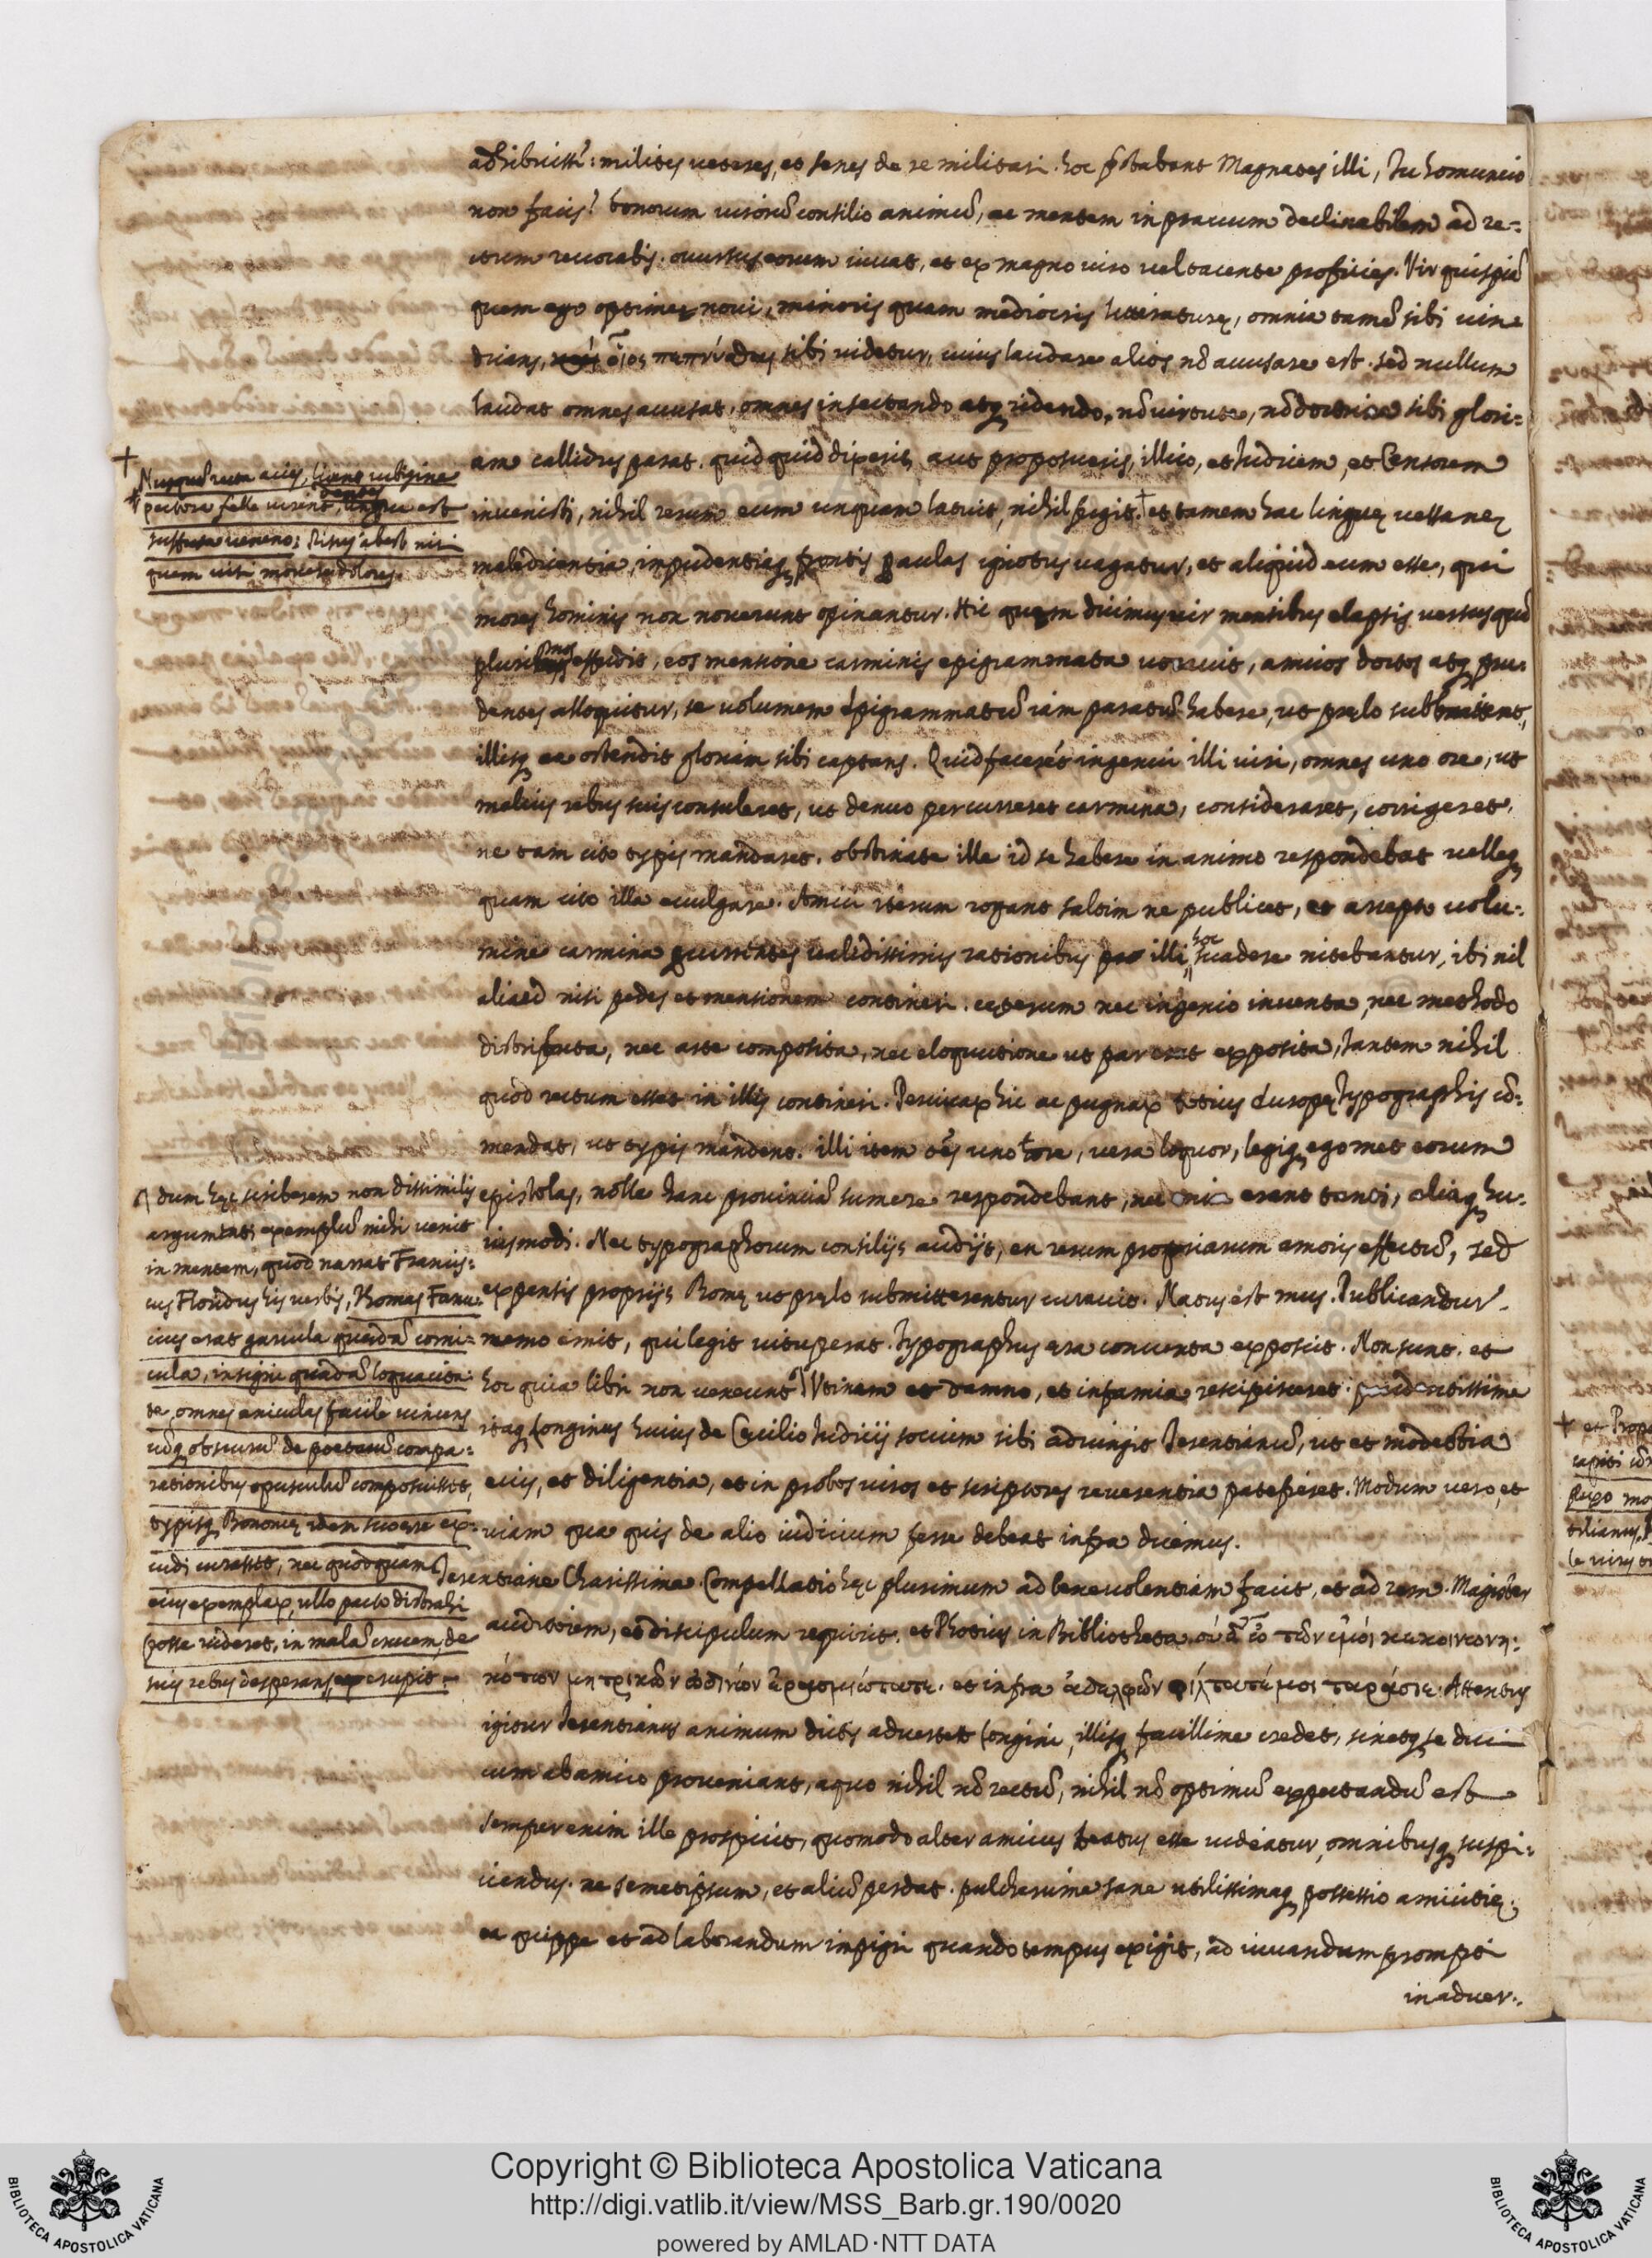 milites veteres, et senes de re militari. hoc Magnates illi, tu homuncio
non facis? bonorum virorū consilio animū, ac mentem in pravum declinabilem ad re-
ctum revocabis. occursus eorum iuvat, et ex magno viro vel tacente proficies. Vir quispiā
quem ego optime novi, minoris quam mediocris litteraturę, omnia tamē sibi vin-
dicans, οἶος sibi videtur, cuius laudare alios nō accusare est. sed nullum
laudat omnes accusat, omnes insectando atq; ridendo, nō virtute, nō doctrina sibi glori-
am callidus parat. quidquid dixeris, aut proposueris, illico, et Iudicem, et Censorem
invenisti, nihil rerum eum unquam latuit, nihil fugit. + et tamen hac linguę
maledicentia, impudentiaq; frontis p aulas ignotus vagatur, et aliquid eum esse, qui
mores hominis non noverunt opinantur. Hic quem dicimus vir mensibus elapsis versus quā
plurimos effudit, eos mentione carminis epigrammata vocavit, amicos doctos atq; pru-
dentes alloquitur, se volumen epigrammatū iam paratū habere, ut pręlo submittent,
illisq; ea ostendit gloriam sibi captans. Quid facerēt ingenui illi viri, omnes uno ore, ut
melius rebus suis consuleret, ut denuo percurreret carmina, consideraret, corrigeret,
ne tam cito typis mandaret. obstinate ille id se habere in animo respondebat velleq;
quam cito illa evulgare. Amici iterum rogant saltim ne publicet, et arrepto volu-
mine carmina pcurrentes validissimis rationibus illi hoc suadere nitebantur, ibi nil
aliud nisi pedes et mentionem contineri. ceterum nec ingenio inventa, nec methodo
distributa, nec arte composita, nec eloquutione ut par erat exposita, tantem nihil
quod rectum esset in illis contineri. Pervicax hic ac pugnax totius Europę typographis cō-
mendat, ut typis mandent. illi item oēs uno ore, vera loquor, legiq; egomet eorum
epistolas, nolle hanc provinciā sumere respondebant, nec erant tanti, aliaq; hu-
iusmodi. Nec typographorum consilijs audijt, en rerum propriarum amoris effectū, sed
expensis propijs Romę ut pręlo submitterentur curavit. Natus est mus. Publicantur.
nemo emit, qui legit vituperat. Typographus era conventa exposcit. Non sunt. et
hoc quia libri non veneunt. Utinam et damno, et infamia resipisceret. prudentissime
itaq; Longinus huius de Cecilio Iudicij socium sibi adiungit Terentianū, ut et modestia
eius, et diligentia, et in probos viros et scriptores reverentia pateferet. Modum vero, et
viam qua quis de alio iudicium ferre debeat infra dicemus.
Terentiane Charissime. Compellatio hęc plurimum ad benevolentiam facit, et ad rem. Magister
auditorem, et discipulum requirit. et Photius in Bibliotheca
et infra ἀδελφῶν φίλτατέ μοι ταράσιε. Attentus
igitur Terentianus animum dictis advertet Longini, illisq; facillime credet, sinetq; se duci
cum ab amico proveniant, a quo nihil nō rectū, nihil nō optimū expectandū est
semper enim ille prospicit, quomodo alter amicus beatus esse videatur, omnibusq; suspi-
ciendus. ne semetipsum, et aliū perdat. pulcherrime sane utilissimaq; possessio amicitię.
ea quippe et ad laborandum impigri quando tempus exigit, ad iuvandum prompti
in adver-
+
Nusquā recta acies, livent rubigine
pectora felle virent, lingua est
suffusa veneno: Risus abest nisi
quem visi movere dolores.
dum hęc scriberem non dissimilis
argumenti exemplū mihi venit
in mentem, quod narrat Francis-
cus Floridus his verbis, Romę Fanu-
cius erat garrula quędā corni-
cula, insigni quadā loquacita-
te, omnes aniculas facile vincens
isq; obscurū de poetarū compa-
rationibus opusculū composuisset,
typisq; Bononię idem suo ęre ex-
cudi curasset, nec quodquam
eius exemplar, ullo pacto distrahi
posse videret, in malā crucem, de
suis rebus desperans erupit.
+ et Prope
Copyright © Biblioteca Apostolica Vaticana
http://digi.vatlib.it/view/MSS_Barb.gr.190/0020
powered by AMLAD·NTT DATA
BIBLIOTECA APOSTOLICA VATICANA
BIBLIOTECA APOSTOLICA VATICANA